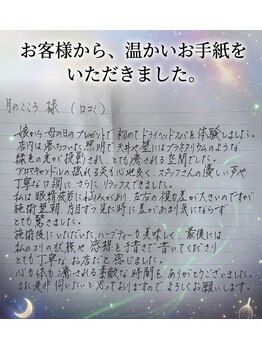 お客様から、温かいお手紙を
いただきました。
月のこころ 様 （口コミ）
娘から母の日のプレゼントで初めてドライヘッドスパを体験しました。
店内は落ちついた照明で天井や壁にはプラネタリウムのような
緑色の光が投影され、とても癒される空間でした。
アロマキャンドルの揺れる炎も心地良く、スタッフさんの優しい声や
丁寧な口調に、さらにリラックスできました。
私は眼精疲労になやみがあり、左右の視力差が大きいのですが
施術翌朝、片目ずつ見た時に差があまり気にならず
とても驚きました。
施術後にいただいた、ハーブティーも美味しく、最後には
私のコリの状態や感想を手書きで書いてくださり
とても丁寧なお店だと感じました。
心も体も癒される素敵な時間をありがとうございました。
また是非伺いたいと思っておりますのでよろしくお願いします。